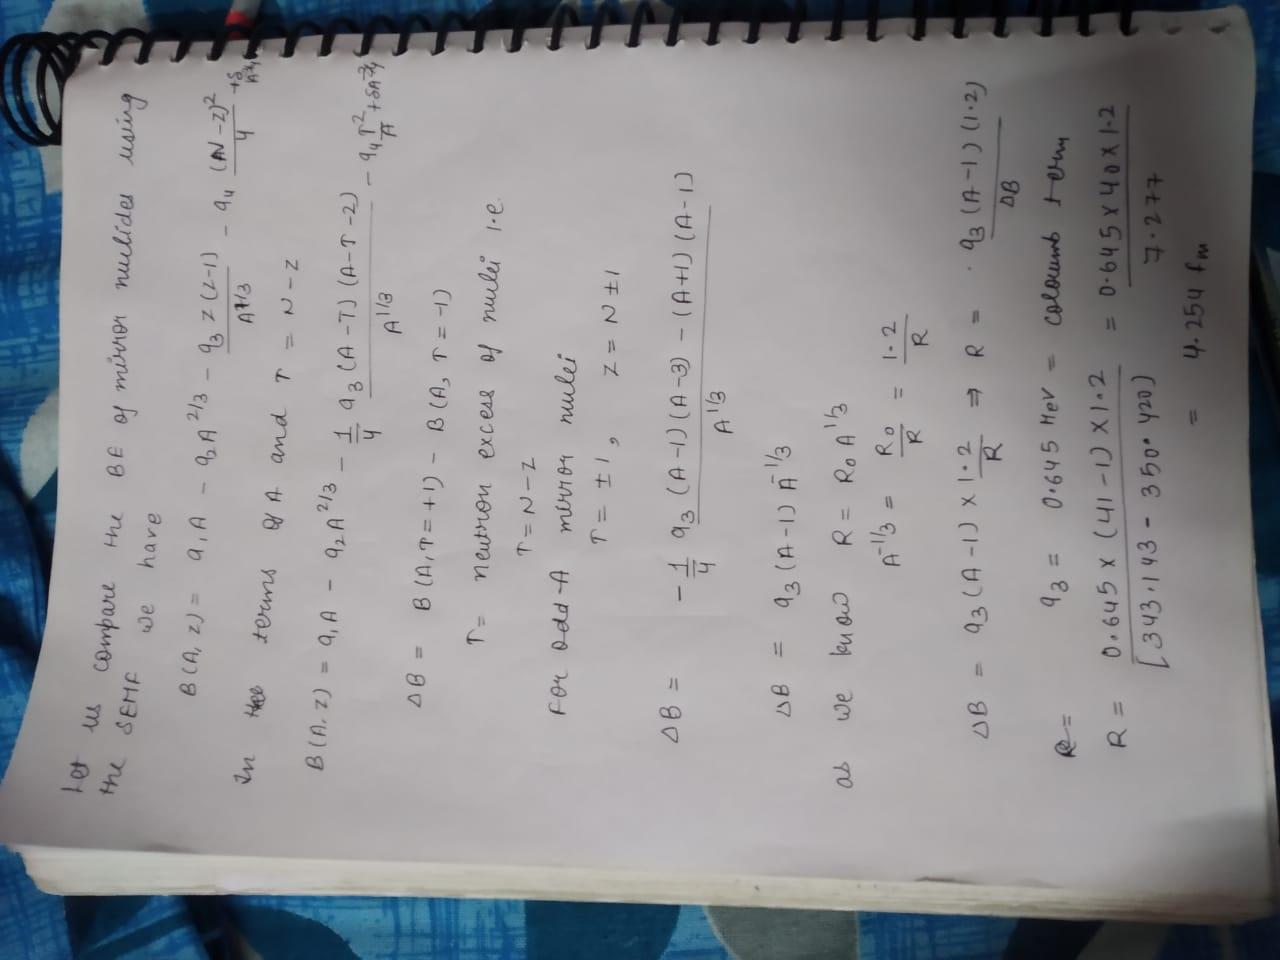 Let us compare the BE of mirror nuclides using
the SEMF we have
B(A, Z) = a₁A - a₂A^2/3 - a₃ Z(Z-1)/A^1/3 - a₄ (N-Z)²/4 + δ/A^3/4
In terms of A and T = N - Z
B(A, Z) = a₁A - a₂A^2/3 - 1/4 a₃(A-T)(A-T-2)/A^1/3 - a₄ T²/A + δA^-3/4
ΔB = B(A, T=+1) - B(A, T=-1)
T = neutron excess of nuclei i.e.
T = N - Z
For odd-A mirror nuclei
T = ±1, Z = N ± 1
ΔB = - 1/4 a₃ (A-1)(A-3) - (A+1)(A-1)/A^1/3
ΔB = a₃(A-1)A^-1/3
as we know R = R₀A^1/3
A^-1/3 = R₀/R = 1.2/R
ΔB = a₃(A-1) × 1.2/R ⇒ R = . a₃(A-1)(1.2)/ΔB
a₃ = 0.645 MeV = coloumb term
R = 0.645 × (41-1) × 1.2/[343.143 - 350.420) = 0.645 × 40 × 1.2/7.277
= 4.254 fm